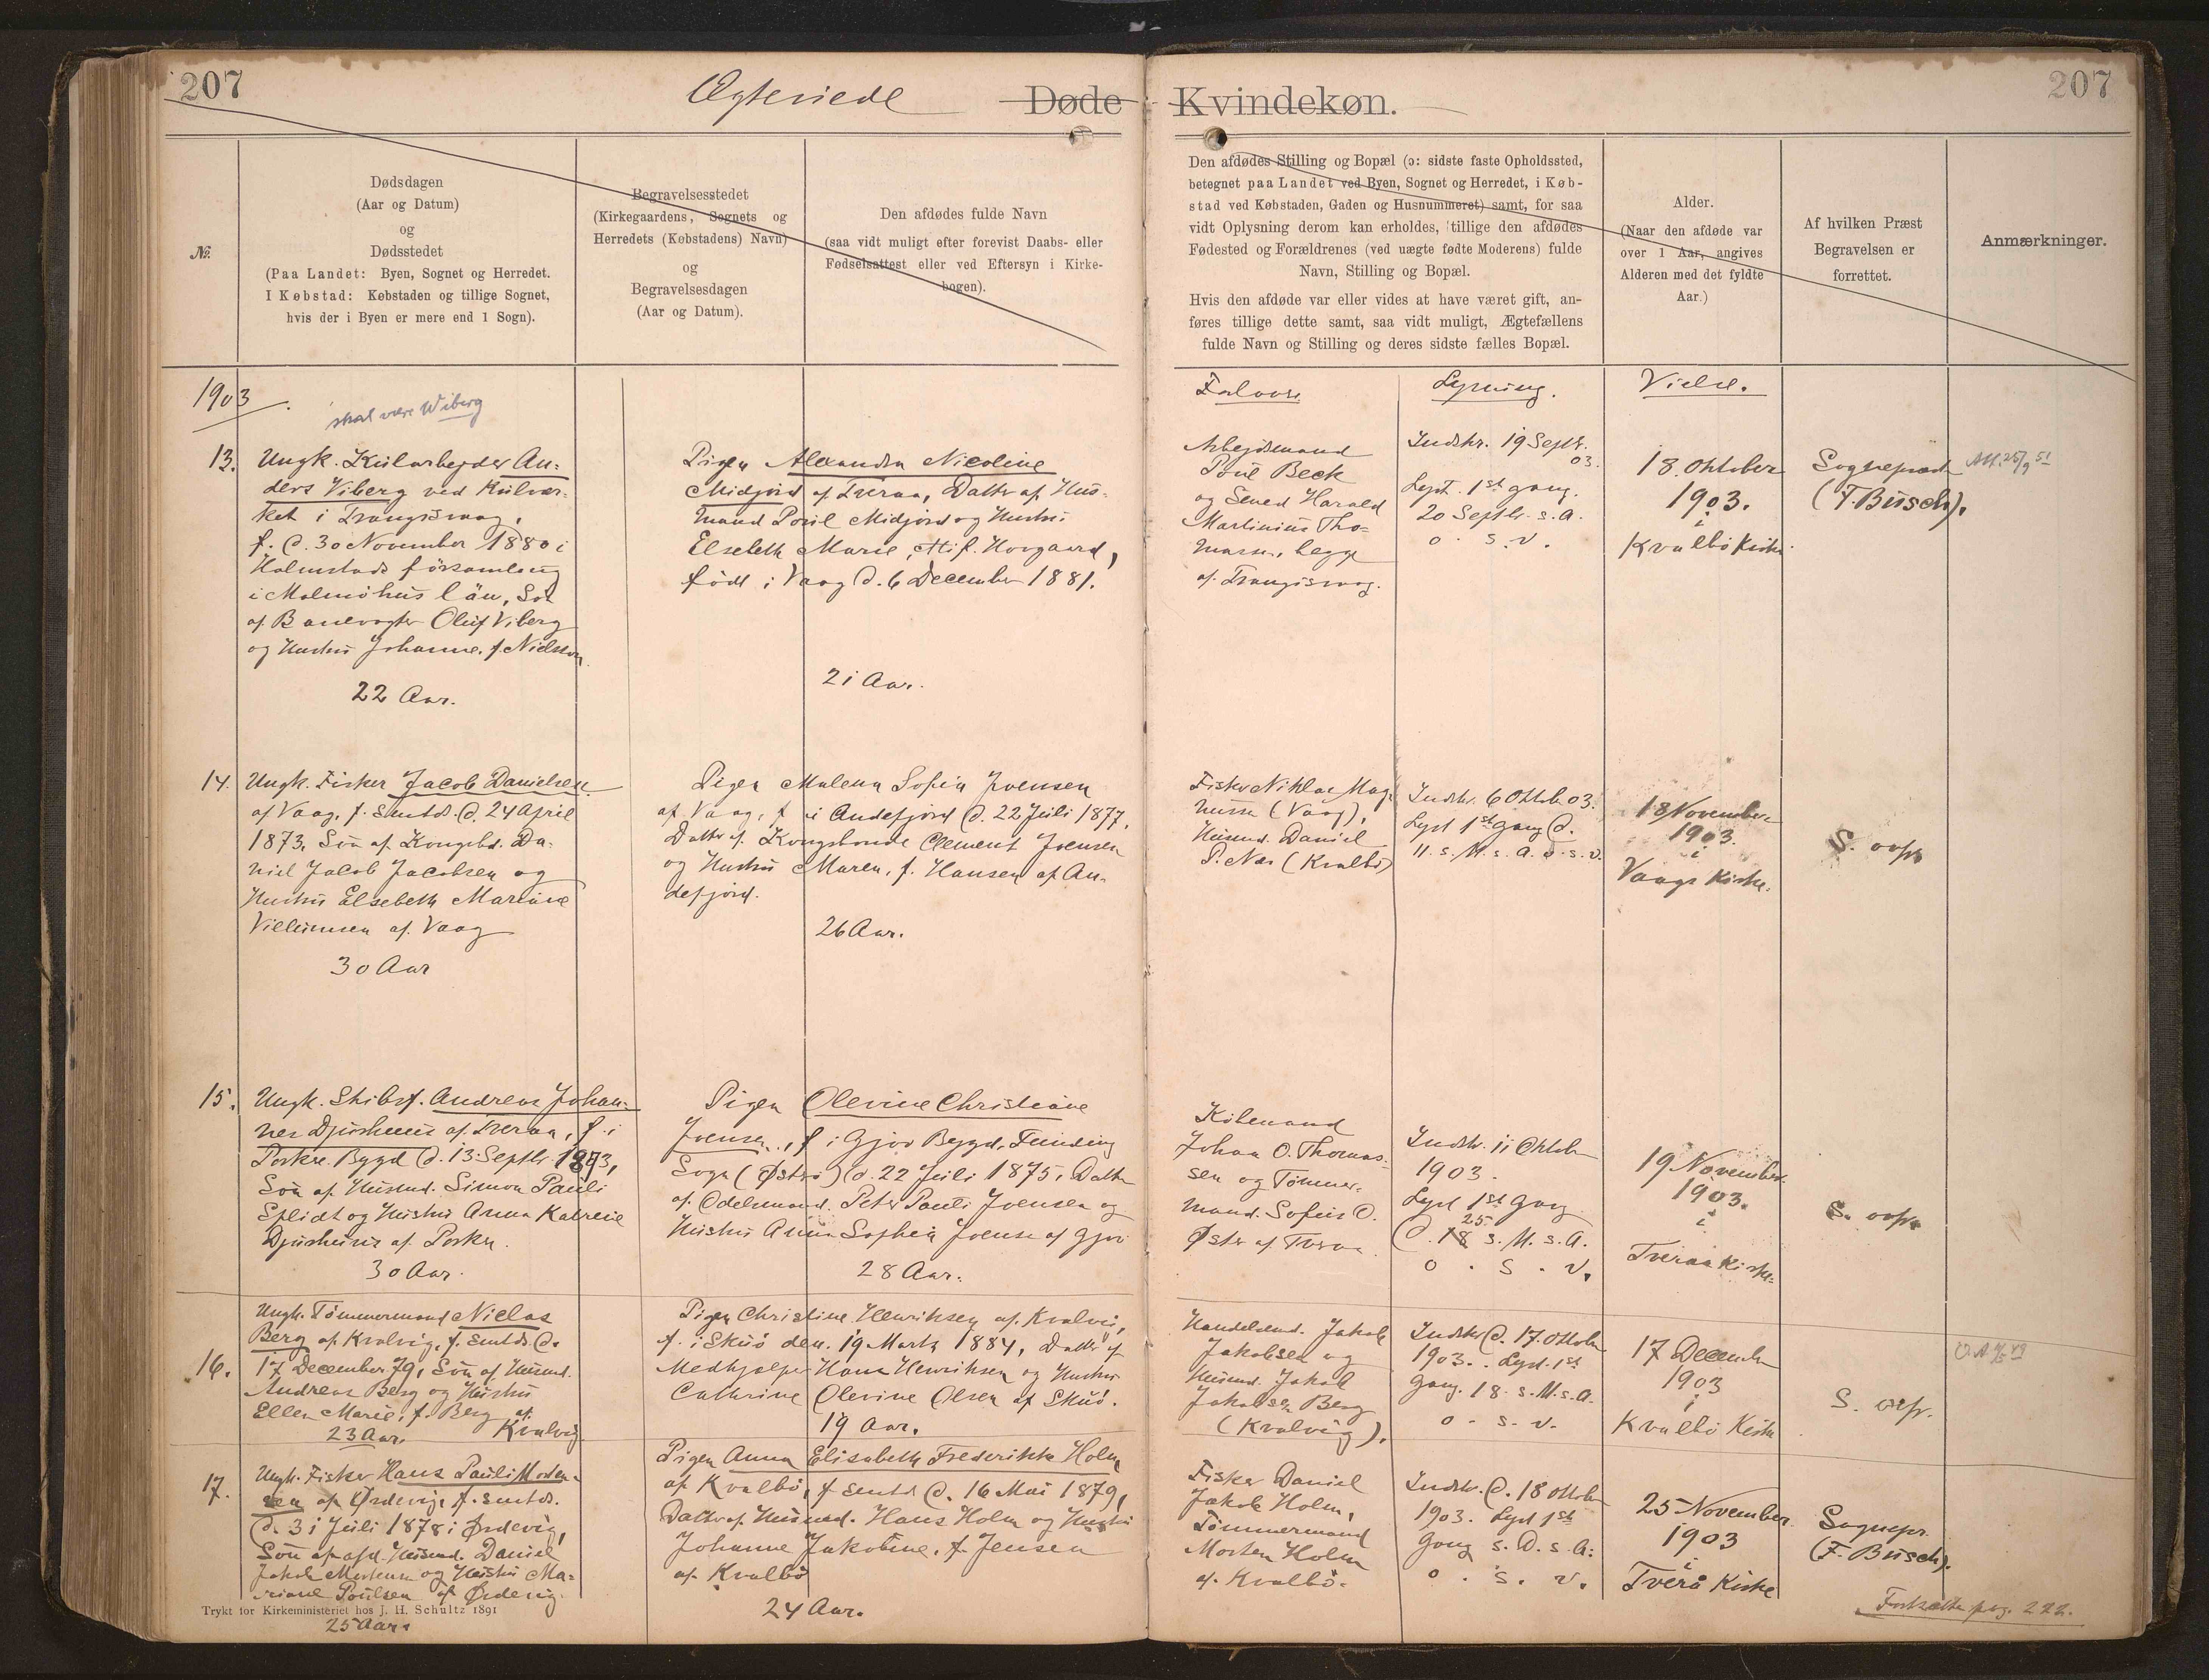 207
Ægteviede
Døde
Kvindekøn.
207
№
Dødsdagen
(Aar og Datum)
og
Dødsstedet
(Paa Landet: Byen, Sognet og Herredet.
I Købstad: Købstaden og tillige Sognet,
hvis der i Byen er mere end 1 Sogn).
Begravelsesstedet
(Kirkegaardens, Sognets og
Herredets (Købstadens) Navn)
og
Begravelsesdagen
(Aar og Datum).
Den afdødes fulde Navn
(saa vidt muligt efter forevist Daabs- eller
Fødselsattest eller ved Eftersyn i Kirke-
bogen).
Den afdødes Stilling og Bopæl (ɔ: sidste faste Opholdssted,
betegnet paa Landet ved Byen, Sognet og Herredet, i Køb-
stad ved Købstaden, Gaden og Husnummeret) samt, for saa
vidt Oplysning derom kan erholdes, tillige den afdødes
Fødested og Forældrenes (ved uægte fødte Moderens) fulde
Navn, Stilling og Bopæl.
Hvis den afdøde var eller vides at have været gift, an-
føres tillige dette samt, saa vidt muligt, Ægtefællens
fulde Navn og Stilling og deres sidste fælles Bopæl.
Alder.
(Naar den afdøde var
over 1 Aar, angives
Alderen med det fyldte
Aar.)
Af hvilken Præst
Begravelsen er
forrettet.
Anmærkninger.
1903
skal være Wiberg
Forlovere
Lysning.
Vielse.
13.
Ungk. Kularbejder An-
ders Viberg ved Kulvær-
ket i Trangisvaag,
f. d. 30 November 1880 i
Holmstads församling
i Malmöhus län, Søn
af Banevogter Oluf Viberg
og Hustru Johanne, f. Nielsson
22 Aar.
Pigen Alexandra Nicoline
Midjord af Tveraa, Datter af Hus-
mand Poul Midjord og Hustru
Elsebeth Marie, f. Hovgaard,
født i Vaag d. 6 December 1881.
21 Aar.
Arbejdsmand
Poul Beck
og Harald
Martinius Tho-
massen, begge
af Trangisvaag.
Indskr. 19 Septb.
03.
Lyst. 1st gang.
20 Septbr. s. A.
o. s. v.
18. Oktober
1903.
i
Kvalbø Kirke
Sognepræst
(F. Busch).
14.
Ungk. Fisker Jacob Danielsen
af Vaag, f. smtds. d. 24 April
1873, Søn af Kongsbd. Da-
niel Jacob Jacobsen og
Hustru Elsebeth Mariane
Villumsen af Vaag
30 Aar
Pigen Malena Sofia Joensen
af Vaag, f. i Andefjord d. 22 Juli 1877,
Datter af Kongsbonde Clement Joensen
og Hustru Maren, f. Hansen af An-
defjord.
26 Aar.
Fisker Niklas Mag-
nussen (Vaag),
Husmd. Daniel
P. Næs (Kvalbø)
Indskr. 6 Oktob. 03.
Lyst 1st gang d.
11. s. M. s. A. o. s. v.
18 November
1903.
i
Vaags Kirke.
S. ovfr
15.
Ungk. Skibsf. Andreas Johan-
nes Djurhuus af Tveraa, f. i
Porkere Bygd d. 13. Septbr. 1873,
Søn af Husmd. Simon Pauli
Splidt og Hustru Anna Katrine
Djurhuus af Porkere.
30 Aar.
Pigen Olevine Christiane
Joensen, f. i Gjov Bygd, Funding
Sogn (Østerø) d. 22 Juli 1875, Datter
af Odelsmand Peter Pauli Joensen og
Hustru Anna Sophia Joensen af Gjov
28 Aar.
Købmand
Johan O. Thomas-
sen og Tømmer-
mand. Sofus O.
Øster af Tveraa.
Indskr. 11 Oktober
1903.
Lyst 1st Gang
25.
d. 18 s. M. s. A.
o. s. v.
19 November
1903.
i
Tveraa Kirke.
S. ovfr.
16.
Ungk. Tømmermand Niclas
Berg af Kvalvig, f. smtds. d.
17 December 79, Søn af Husmd.
Andreas Berg og Hustru
Ellen Marie, f. Berg af
Kvalvig
23 Aar.
Pigen Christine Henriksen af Kvalvig,
f. i Skuø den 19 Marts 1884, Datter af
Medhjælper Hans Henriksen og Hustru
Cathrine Olevine Olsen af Skuø.
19 Aar.
Handelsmd. Jakob
Jakobsen og
Husmd. Jakob
Jakobsen Berg
(Kvalvig).
Indskr. d. 17. Oktober
1903. Lyst. 1st
Gang. 18. s. M. s. A.
o. s. v.
17 December
1903
i
Kvalbø Kirke
S. ovfr.
17.
Ungk. Fisker Hans Pauli Morten-
sen af Ørdevig, f. smtds.
d. 31 Juli 1878 i Ørdevig,
Søn af afd. Husmd. Daniel
Jakob Mortensen og Hustru Ma-
riane Poulsen af Ørdevig.
25 Aar.
Pigen Anna Elisabeth Frederikke Holm
af Kvalbø, f. smtds d. 16 Mai 1879,
Datter af Husmd. Hans Holm og Hustru
Johanne Jakobine, f. Jensen
af Kvalbø
24 Aar.
Fisker Daniel
Jakob Holm,
Tømmermand
Morten Holm
af Kvalbø.
Indskr. d. 18 Oktober
1903. Lyst 1st
Gang s. D. s. A.
o. s. v.
25 November
1903
i
Tverå Kirke
Sognepr.
(F. Busch).
Fortsættes pag. 222.
Trykt for Kirkeministeriet hos J. H. Schultz 1891